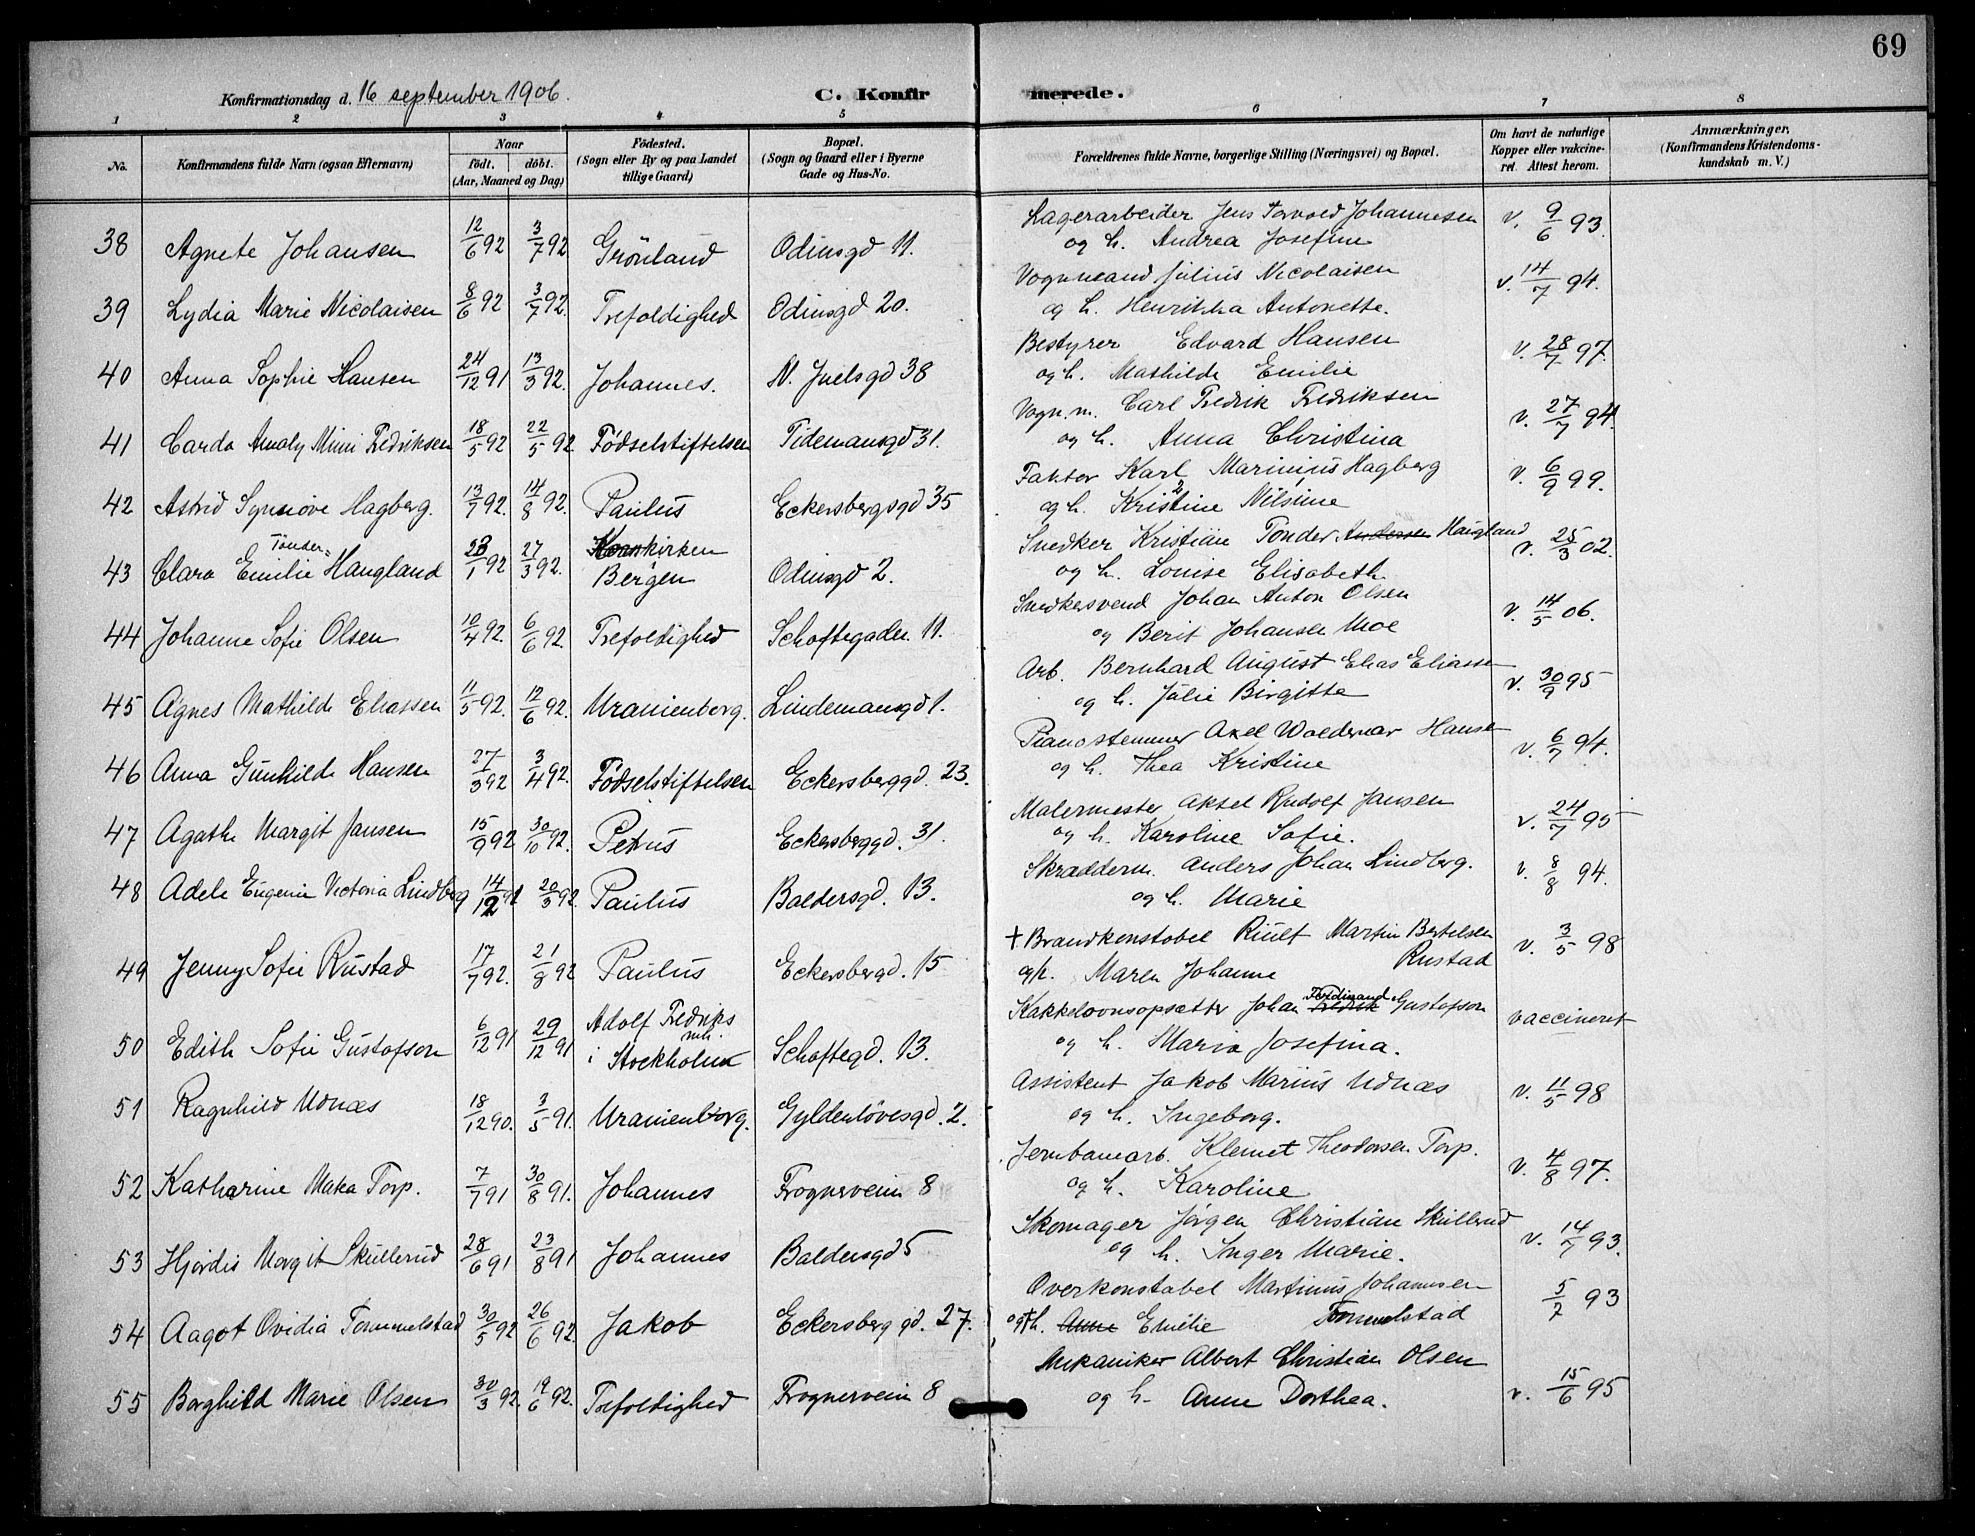 69
Konfirmationsdag d. 16 september 1906.
C. Konfirmerede.
1 2 3 4 5 6 7 8
No.
Konfirmandens fulde Navn (ogsaa Efternavn)
Naar
födt. döbt.
(Aar, Maaned og Dag)
Födested.
(Sogn eller By og paa Landet
tillige Gaard)
Bopæl.
(Sogn og Gaard eller i Byerne
Gade og Hus-No.
Forældrenes fulde Navne, borgerlige Stilling (Næringsvei) og Bopæl.
Om havt de naturlige
Kopper eller vakcine-
ret. Attest herom.
Anmærkninger.
(Konfirmandens Kristendoms-
kundskab m. V.)
38 Agnete Johansen 12/6 92 3/7 92. Grönland Odinsgd 11. Lagerarbeider Jens Torvald Johannesen v. 9/6 93.
og h. Andrea Josefine
39 Lydia Marie Nicolaisen 8/6 92 3/7 92. Trefoldighed Odinsgd 20. Vognmand Julius Nicolaisen v. 14/7 94.
og h. Henrikka Antonette.
40 Anna Sophie Hansen 24/12 91 13/3 92. Johannes. N. Juelsgd 38 Bestyrer Edvard Hansen v. 28/7 97.
og h. Mathilde Emilie
41 Carda Amaly Mimi Fredriksen 18/5 92 22/5 92 Födselstiftelsen Tidemansgd 31. Vogn.m. Carl Fredrik Fredriksen v. 27/7 94.
og h. Anna Christina
42 Astrid Synnöve Hagberg. 13/7 92. 14/8 92. Paulus Eckersbergsgd 35 Faktor Karl Marinius Hagberg v. 6/9 99.
og h. Kristine Nilsine
43 Clara Emilie Tönder= Haugland 23/1 92 27/3 92. Korskirken
Bergen Odinsgd 2. Snedker Kristian Tonder Andersen Haugland v. 25/3 02.
og h. Louise Elisabeth
44 Johanne Sofie Olsen 10/4 92 6/6 92. Trefoldighed Schoftegaden 11. Snedkersvend Johan Anton Olsen v. 14/5 06.
og Berit Johansen Moe
45 Agnes Mathilde Eliassen 11/5 92. 12/6 92. Uranienborg. Lindemansgd 1. Arb. Bernhard August Elias Eliassen v. 30/9 95
og h. Julie Birgitte
46 Anna Gunhilde Hansen 27/3 92 3/4 92. Födselstiftelsen Eckersberggd. 23. Pianostemmer Axel Waldemar Hansen v. 6/7 94.
og h. Thea Kristine
47 Agathe Margit Jansen 15/9 92 30/10 92. Petrus Eckersberggd. 31. Malermester Aksel Rudolf Jansen v. 24/7 95
og h. Karoline Sofie.
48 Adele Eugenie Victoria Lindberg 14/12 91 20/3 92. Paulus Baldersgd. 13. Skrædderm. Anders Johan Lindberg. v. 8/8 94.
og h. Marie
49 Jenny Sofie Rustad 17/7 92. 21/8 92 Paulus Eckersbergd. 15 + Brandkonstabel Martin Bertelsen Rustad v. 3/5 98
og h. Maren Johanne
50 Edith Sofie Gustafson 6/12 91 29/12 91 Adolf Fredriks
mh.
i Stockholm Schoftegd. 13. Kakkelovnsopsætter Johan Ferdinand Fredrik Gustafson vaccineret
og h. Maria Josefina.
51 Ragnhild Udnæs 18/12 90. 3/5 91. Uranienborg. Gyldenlövesgd. 2. Assistent Jakob Marius Udnæs v. 11/5 98
og h. Ingeborg.
52 Katharine Maka Torp. 7/7 91 30/8 91. Johannes Frognerveien 8 Jernbanearb. Klemet Theodorsen Torp. v. 4/8 97.
og h. Karoline
53 Hjördis Margit Skullerud 28/6 91 23/8 91 Johannes Baldersgd 5 Skomager Jörgen Christian Skullerud v. 14/7 93.
og h. Inger Marie.
54 Aagot Ovidia Tommelstad 30/5 92 26/6 92. Jakob Eckersberg gd. 27. Overkonstabel Martinus Johannesen Tommelstad 5/7 93
og + h. Anne Emilie
55 Borghild Marie Olsen 30/3 92. 19/6 92. Trefoldighed Frognerveien 8 Mekaniker Albert Christian Olsen v. 15/6 95
og h. Anne Dorthea.